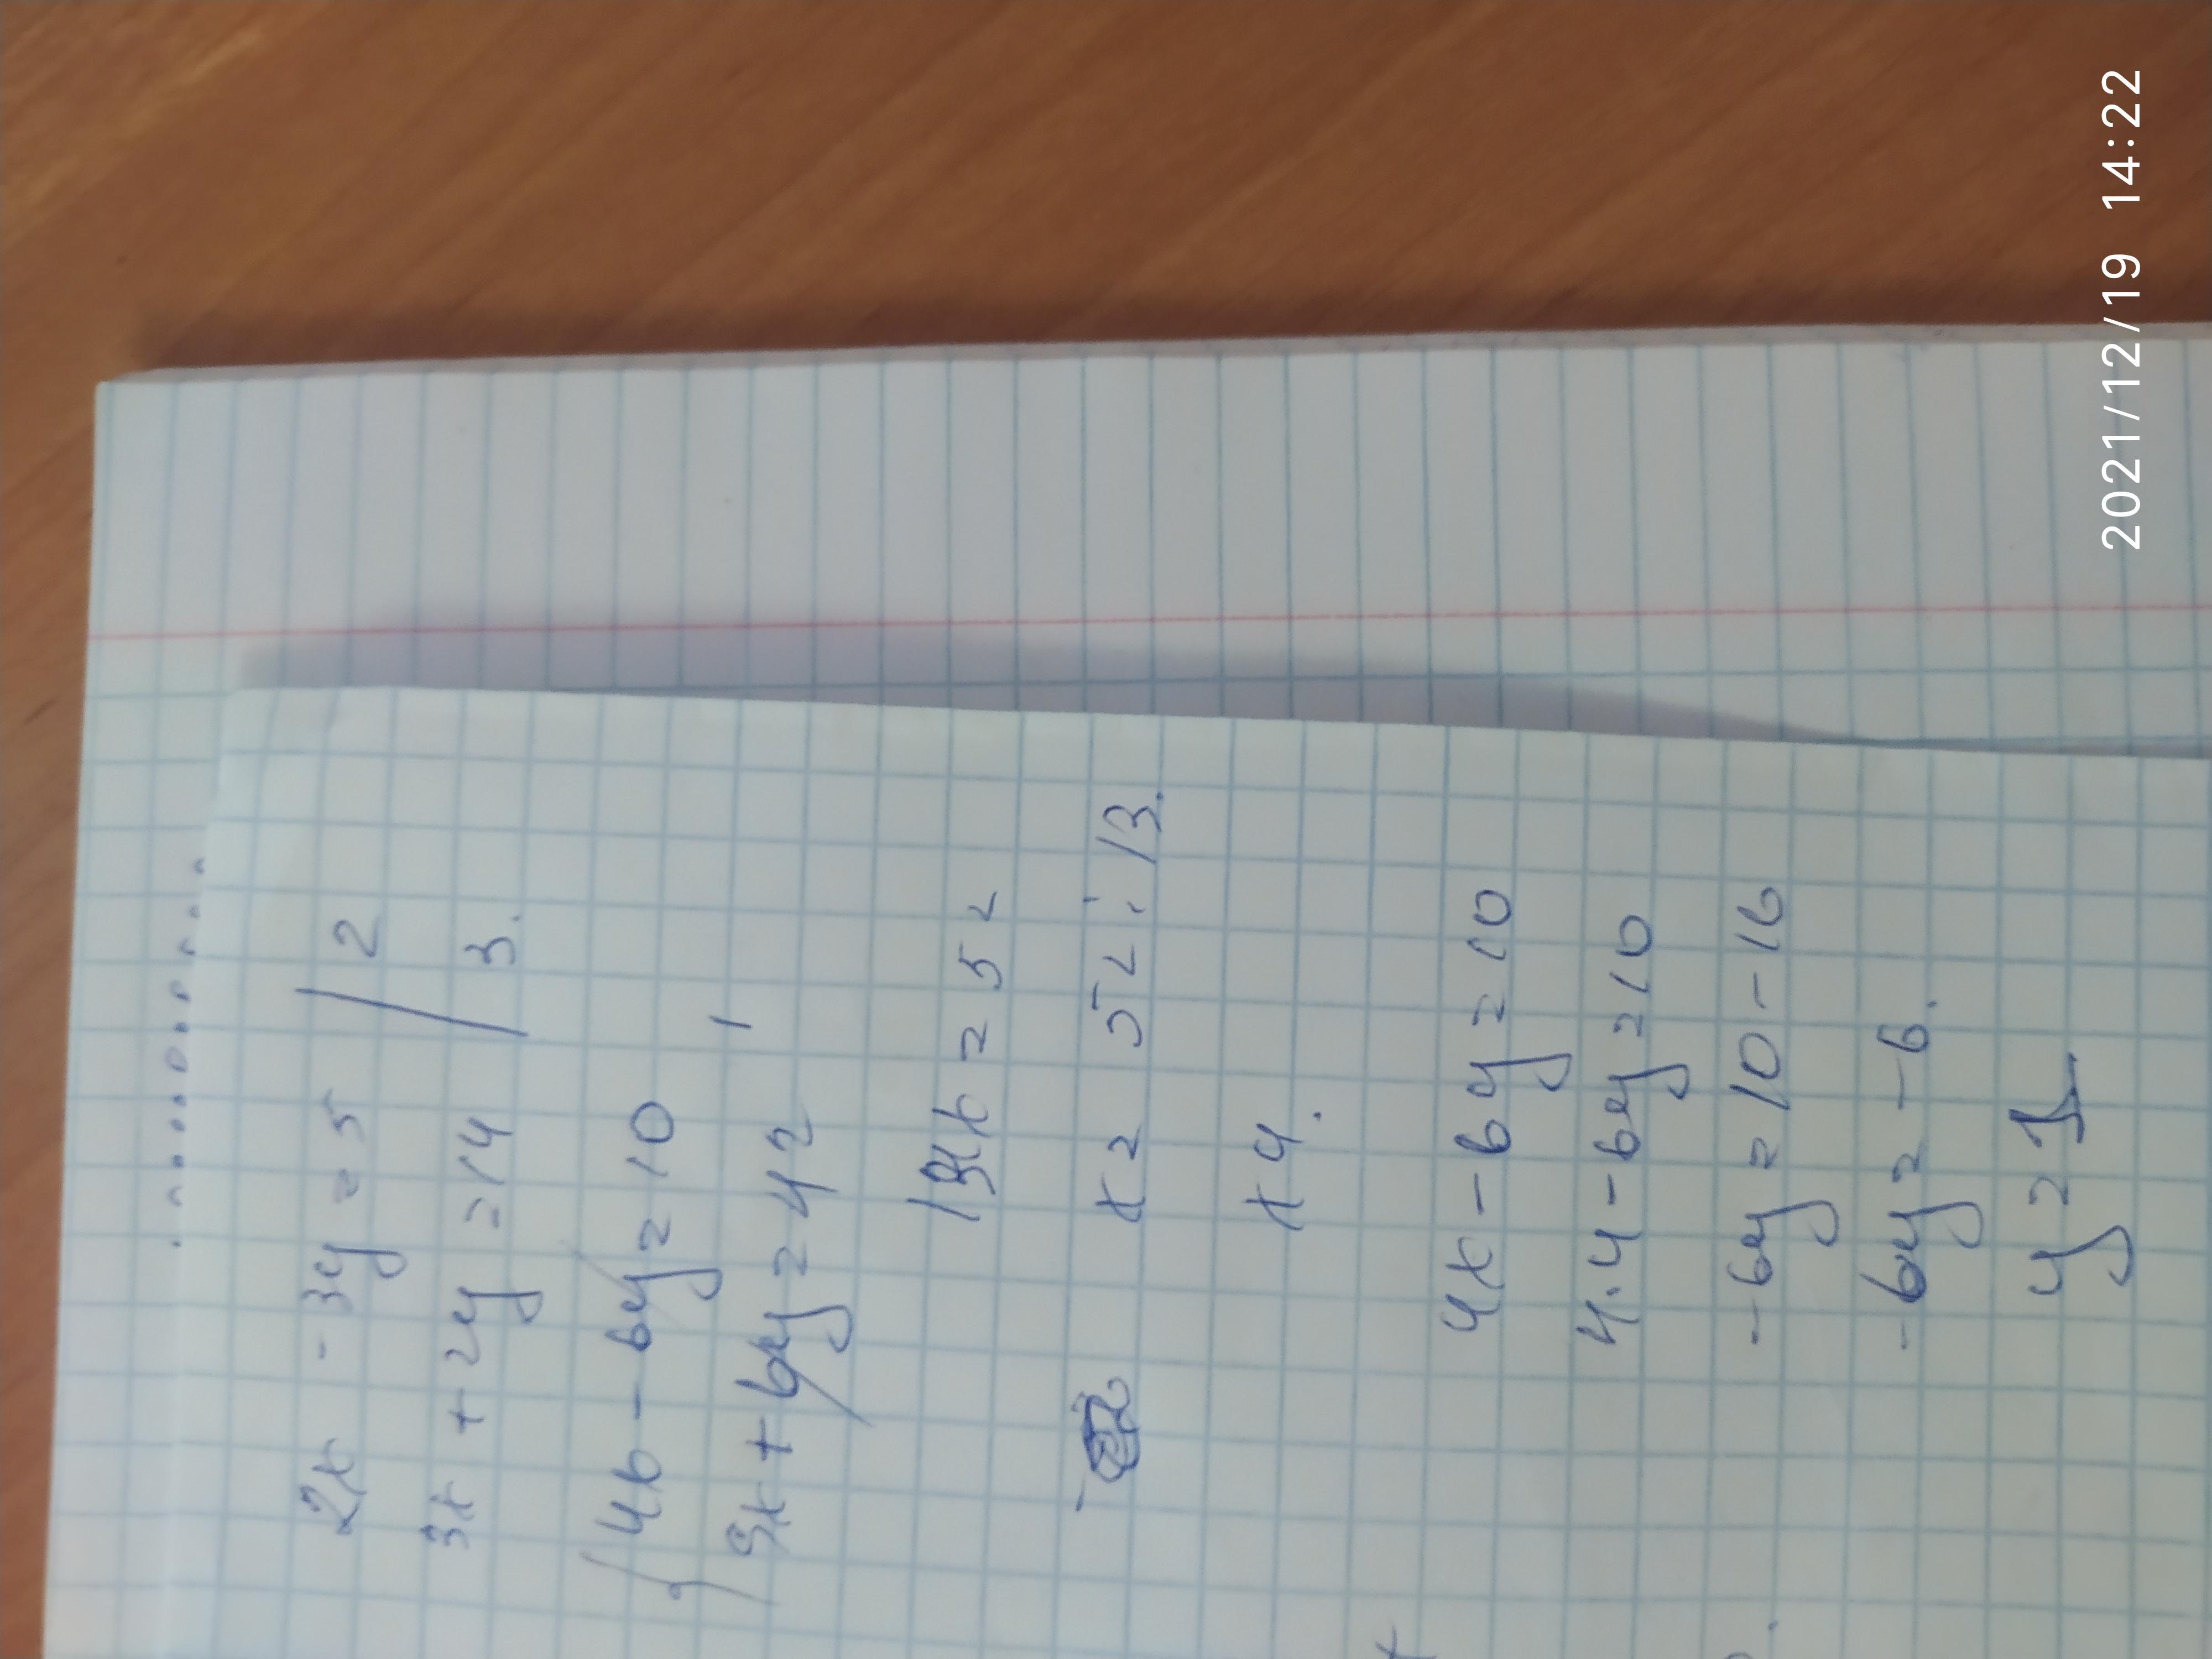 2x - 3y = 5 / 2
3x + 2y = 14 / 3.
{ 4x - 6y = 10
9x + 6y = 42
13x = 52
x = 52 : 13.
x 4.
4x - 6y = 10
4·4 - 6y = 10
-6y = 10 - 16
-6y = -6.
y = 1
2021/12/19 14:22